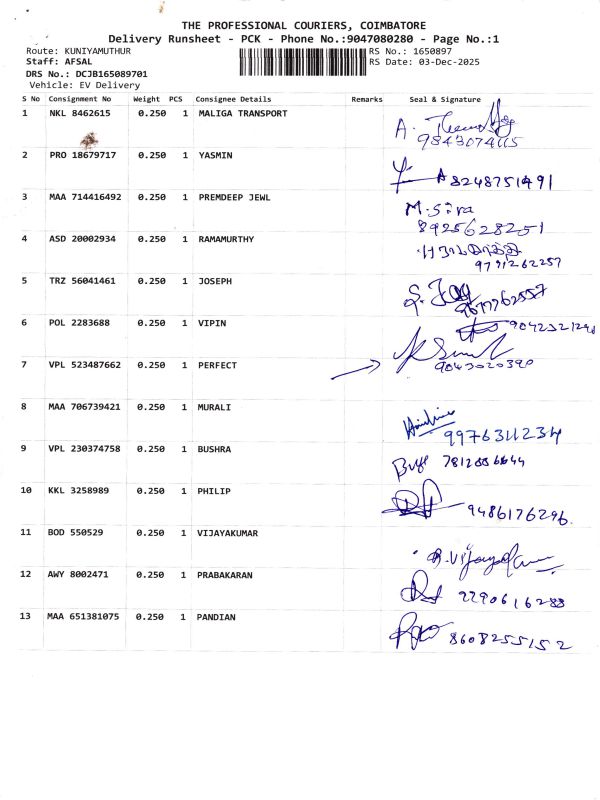 THE PROFESSIONAL COURIERS, COIMBATORE
Delivery Runsheet - PCK - Phone No.:9047080280 - Page No.:1
Route: KUNIYAMUTHUR RS No.: 1650897
Staff: AFSAL RS Date: 03-Dec-2025
DRS No.: DCJB165089701
Vehicle: EV Delivery
S No Consignment No Weight PCS Consignee Details Remarks Seal & Signature
1 NKL 8462615 0.250 1 MALIGA TRANSPORT A.
2 PRO 18679717 0.250 1 YASMIN
8248751491
3 MAA 714416492 0.250 1 PREMDEEP JEWL M. Siva
8925628251
4 ASD 20002934 0.250 1 RAMAMURTHY
9791262257
5 TRZ 56041461 0.250 1 JOSEPH
9677762557
6 POL 2283688 0.250 1 VIPIN
7 VPL 523487662 0.250 1 PERFECT 9043020390
8 MAA 706739421 0.250 1 MURALI
9976311234
9 VPL 230374758 0.250 1 BUSHRA
10 KKL 3258989 0.250 1 PHILIP
9486176296
11 BOD 550529 0.250 1 VIJAYAKUMAR
12 AWY 8002471 0.250 1 PRABAKARAN
13 MAA 651381075 0.250 1 PANDIAN
8608255152